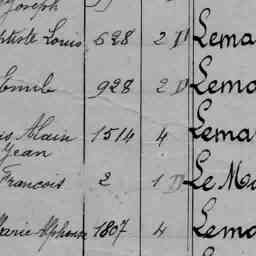 Joseph
ptiste Louis 628 2 D Lema
Emile 928 2 D Lema
is Alain 1514 4 Lema
Jean
Francois 2 1 D Le Ma
Marie Alphonse 1807 4 Lema